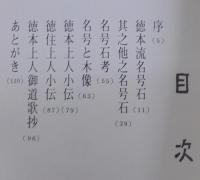 目次
序(5)
徳本流名号石(11)
其之他之名号石(29)
名号石考(55)
名号と木像(63)
徳本上人小伝(79)
徳住上人小伝(87)
徳本上人御道歌抄(96)
あとがき(120)